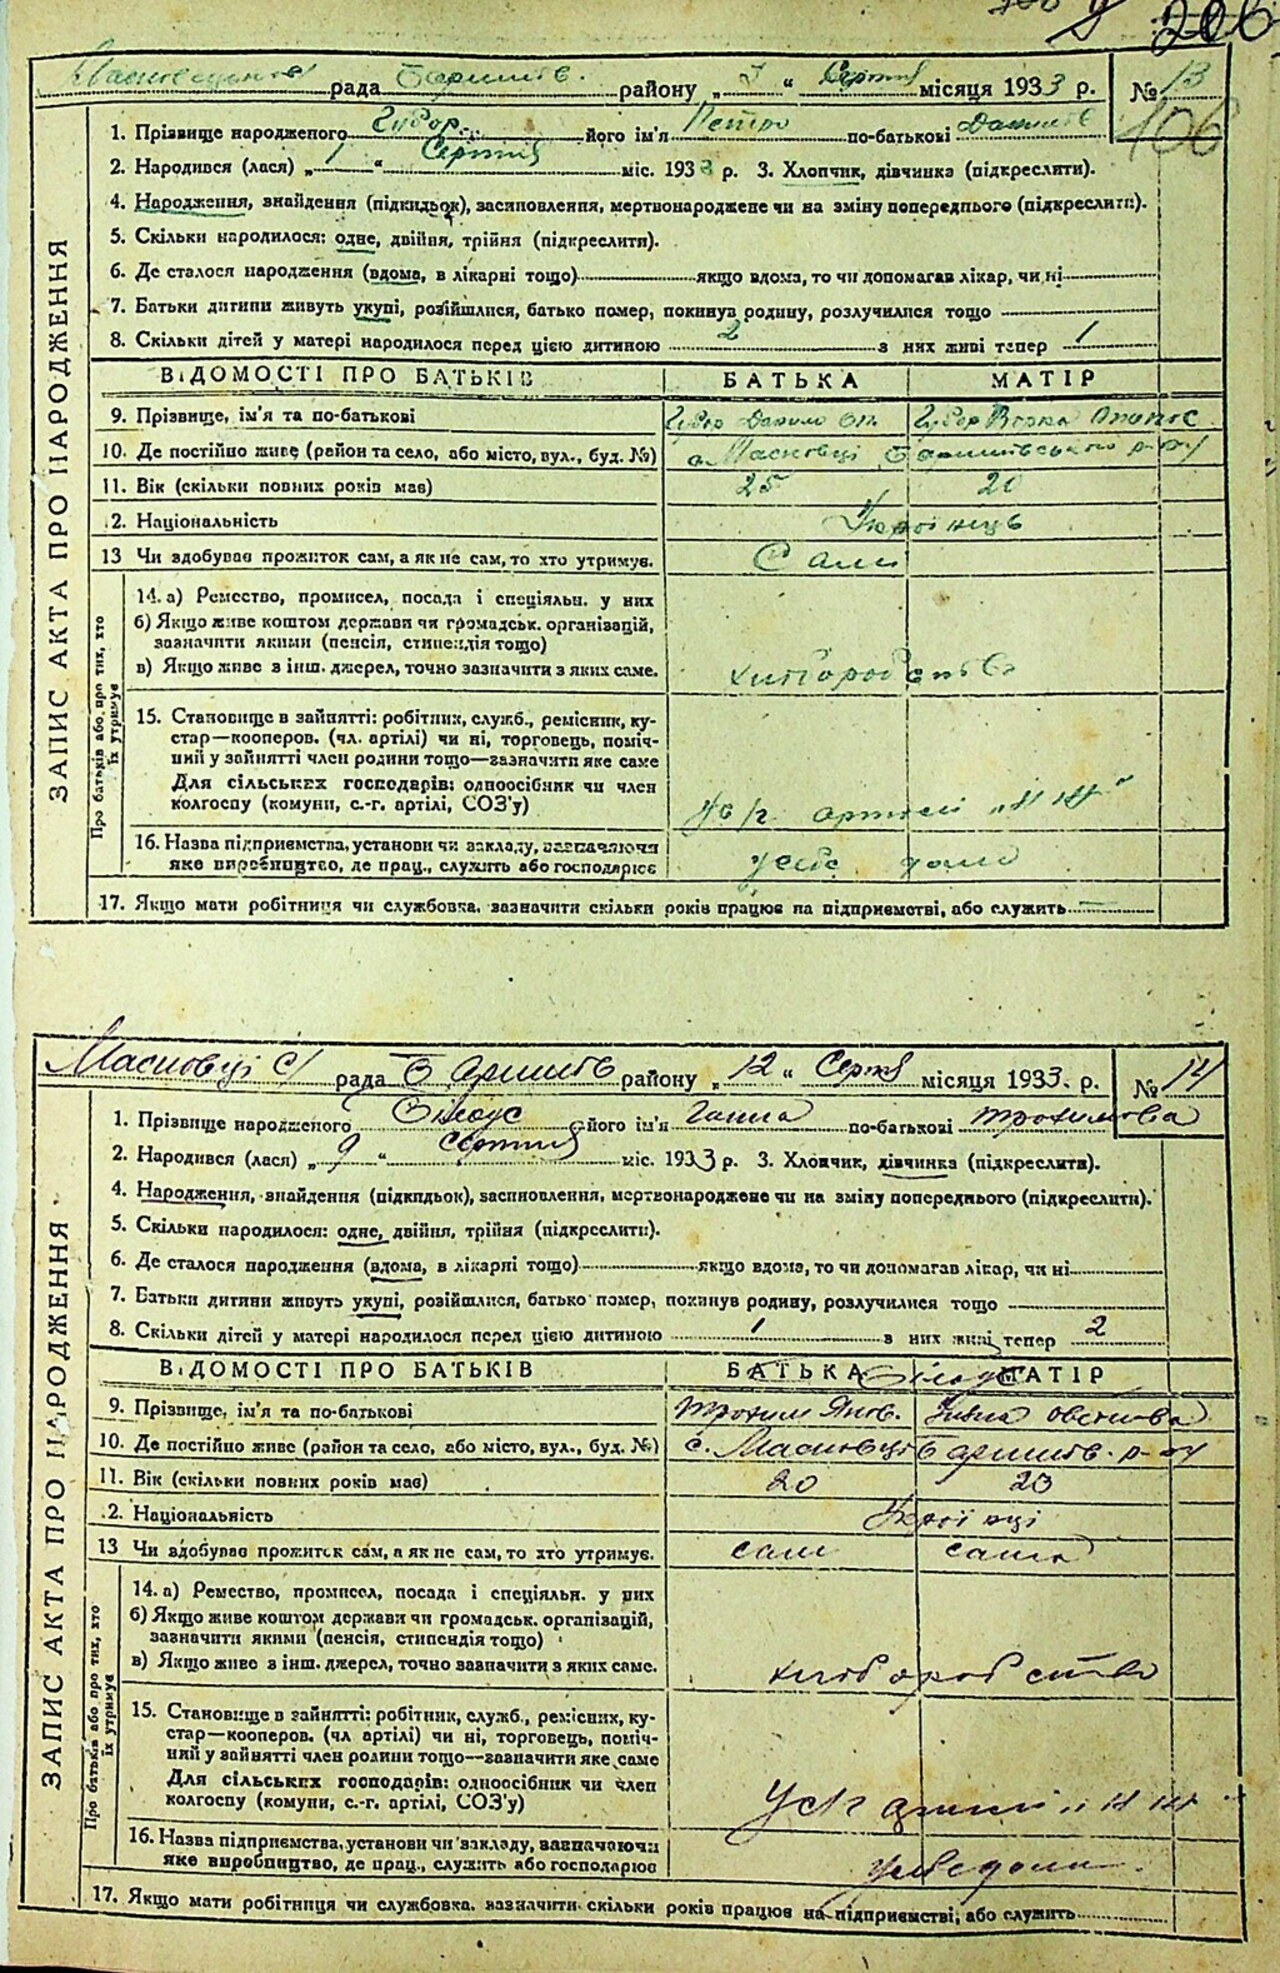 206
рада Баришів. району „ “ Серпня місяця 1933 р. № 13
106
1. Прізвище народженого його ім'я Петро по-батькові
2. Народився (лася) „ 1 “ Серпня міс. 1933 р. 3. Хлопчик, дівчинка (підкреслити).
4. Народження, знайдення (підкидьок), засиновлення, мертвонароджене чи на зміну попереднього (підкреслити).
5. Скільки народилося: одне, двійня, трійня (підкреслити).
6. Де сталося народження (вдома, в лікарні тощо) якщо вдома, то чи допомагав лікар, чи ні
7. Батьки дитини живуть укупі, розійшлися, батько помер, покинув родину, розлучилися тощо
8. Скільки дітей у матері народилося перед цією дитиною 2 з них живі тепер 1
ВІДОМОСТІ ПРО БАТЬКІВ БАТЬКА МАТІР
9. Прізвище, ім'я та по-батькові Данило
10. Де постійно живе (район та село, або місто, вул., буд. №) с. Масковці Баришівського р-ну
11. Вік (скільки повних років має) 25 20
2. Національність Українець
13 Чи здобуває прожиток сам, а як не сам, то хто утримує. Сами
14. а) Ремество, промисел, посада і спеціяльн. у них
б) Якщо живе коштом держави чи громадськ. організацій,
зазначити якими (пенсія, стипендія тощо)
в) Якщо живе з інш. джерел, точно зазначити з яких саме. хліборобство
15. Становище в зайнятті: робітник, служб., ремісник, ку-
стар—кооперов. (чл. артілі) чи ні, торговець, поміч-
ний у зайнятті член родини тощо—зазначити яке саме
Для сільських господарів: одноосібник чи член
колгоспу (комуни, с.-г. артілі, СОЗ'у) артілі
16. Назва підприємства, установи чи закладу, зазначаючи
яке виробництво, де прац., служить або господарює
17. Якщо мати робітниця чи службовка, зазначити скільки років працює на підприємстві, або служить
ЗАПИС АКТА ПРО НАРОДЖЕННЯ
Про батьків або про тих, хто
їх утримує
Масковці с/ рада Баришів району „ 12 “ Серпня місяця 1933. р. № 14
1. Прізвище народженого Білоус його ім'я Ганна по-батькові Трохимова
2. Народився (лася) „ 9 “ Серпня міс. 1933 р. 3. Хлопчик, дівчинка (підкреслити).
4. Народження, знайдення (підкидьок), засиновлення, мертвонароджене чи на зміну попереднього (підкреслити).
5. Скільки народилося: одне, двійня, трійня (підкреслити).
6. Де сталося народження (вдома, в лікарні тощо) якщо вдома, то чи допомагав лікар, чи ні
7. Батьки дитини живуть укупі, розійшлися, батько помер, покинув родину, розлучилися тощо
8. Скільки дітей у матері народилося перед цією дитиною 1 з них живі тепер 2
ВІДОМОСТІ ПРО БАТЬКІВ БАТЬКА Білоус МАТІР
9. Прізвище, ім'я та по-батькові Трохим Яков.
10. Де постійно живе (район та село, або місто, вул., буд. №) с. Масковці Баришів. р-ну
11. Вік (скільки повних років має) 20 23
2. Національність Українці
13 Чи здобуває прожиток сам, а як не сам, то хто утримує. сам сама
14. а) Ремество, промисел, посада і спеціяльн. у них
б) Якщо живе коштом держави чи громадськ. організацій,
зазначити якими (пенсія, стипендія тощо)
в) Якщо живе з інш. джерел, точно зазначити з яких саме. хліборобство
15. Становище в зайнятті: робітник, служб., ремісник, ку-
стар—кооперов. (чл артілі) чи ні, торговець, поміч-
ний у зайнятті член родини тощо—зазначити яке саме
Для сільських господарів: одноосібник чи член
колгоспу (комуни, с.-г. артілі, СОЗ'у)
16. Назва підприємства, установи чи закладу, зазначаючи
яке виробництво, де прац., служить або господарює
17. Якщо мати робітниця чи службовка, зазначити скільки років працює на підприємстві, або служить
ЗАПИС АКТА ПРО НАРОДЖЕННЯ
Про батьків або про тих, хто
їх утримує